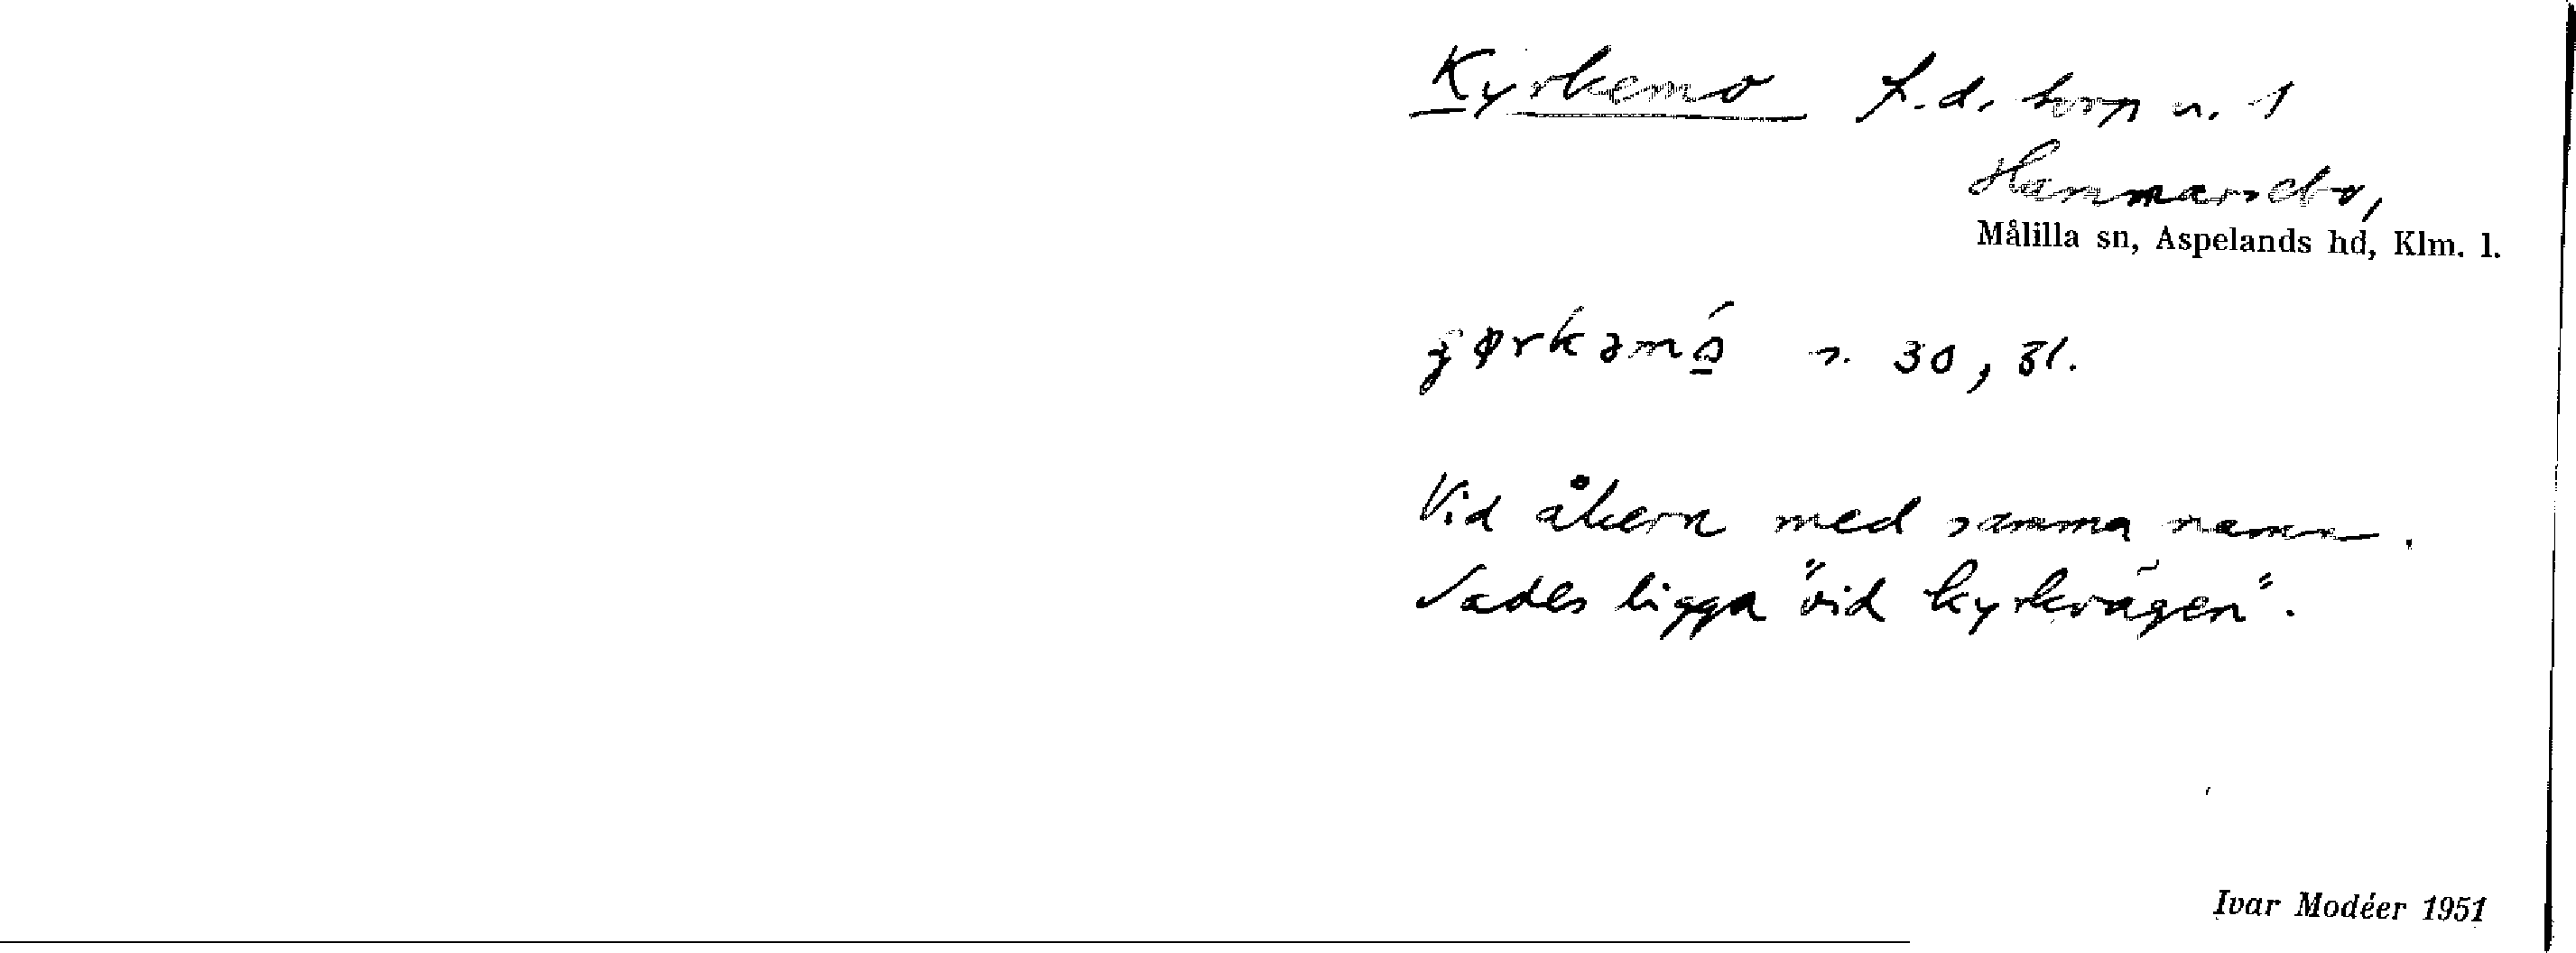 Kyrkemo f.d. torp u. 1
Hammarsebo,
Målilla sn, Aspelands hd, Klm. l.
s. 30, 31.
Vid åkern med samma namn.
Sades ligga "vid kyrkvägen".
Ivar Modéer 1951